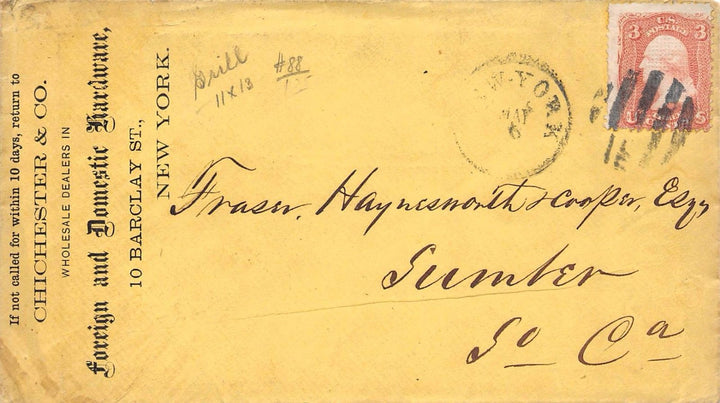 If not called for within 10 days, return to
CHICHESTER & CO.
WHOLESALE DEALERS IN
Foreign and Domestic Hardware,
10 BARCLAY ST.,
NEW YORK.
Grill
11x13
#88
NEW-YORK
6
3 U.S. POSTAGE 3
Fraser, Haynesworth & Cooper, Esqs
Sumter
So Ca